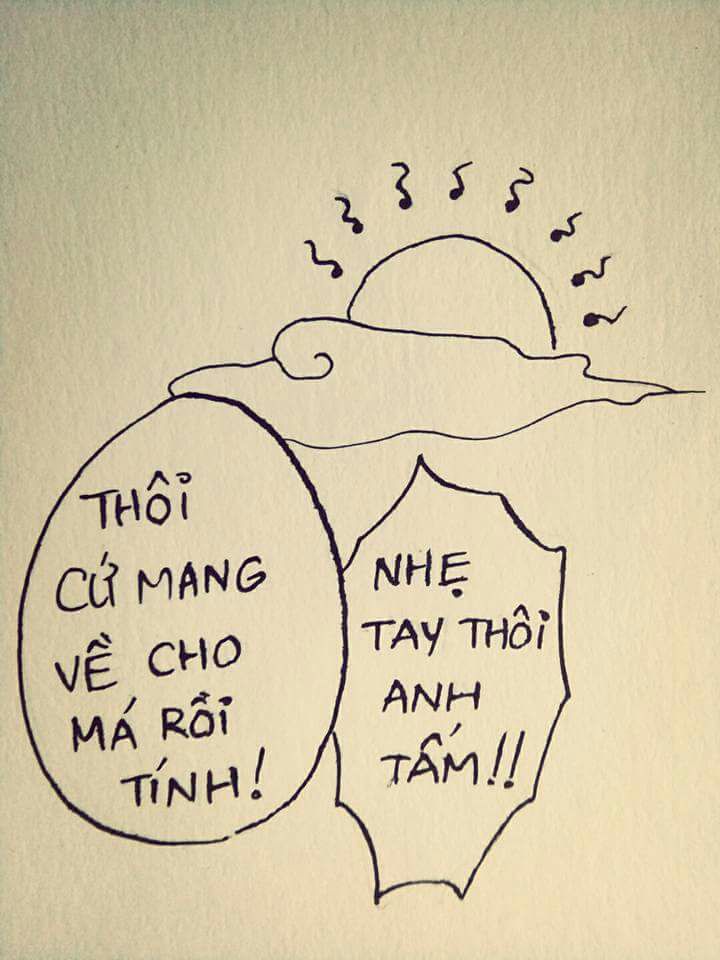 THÔI
CỨ MANG
VỀ CHO
MÁ RỒI
TÍNH!
NHẸ
TAY THÔI
ANH
TẤM!!